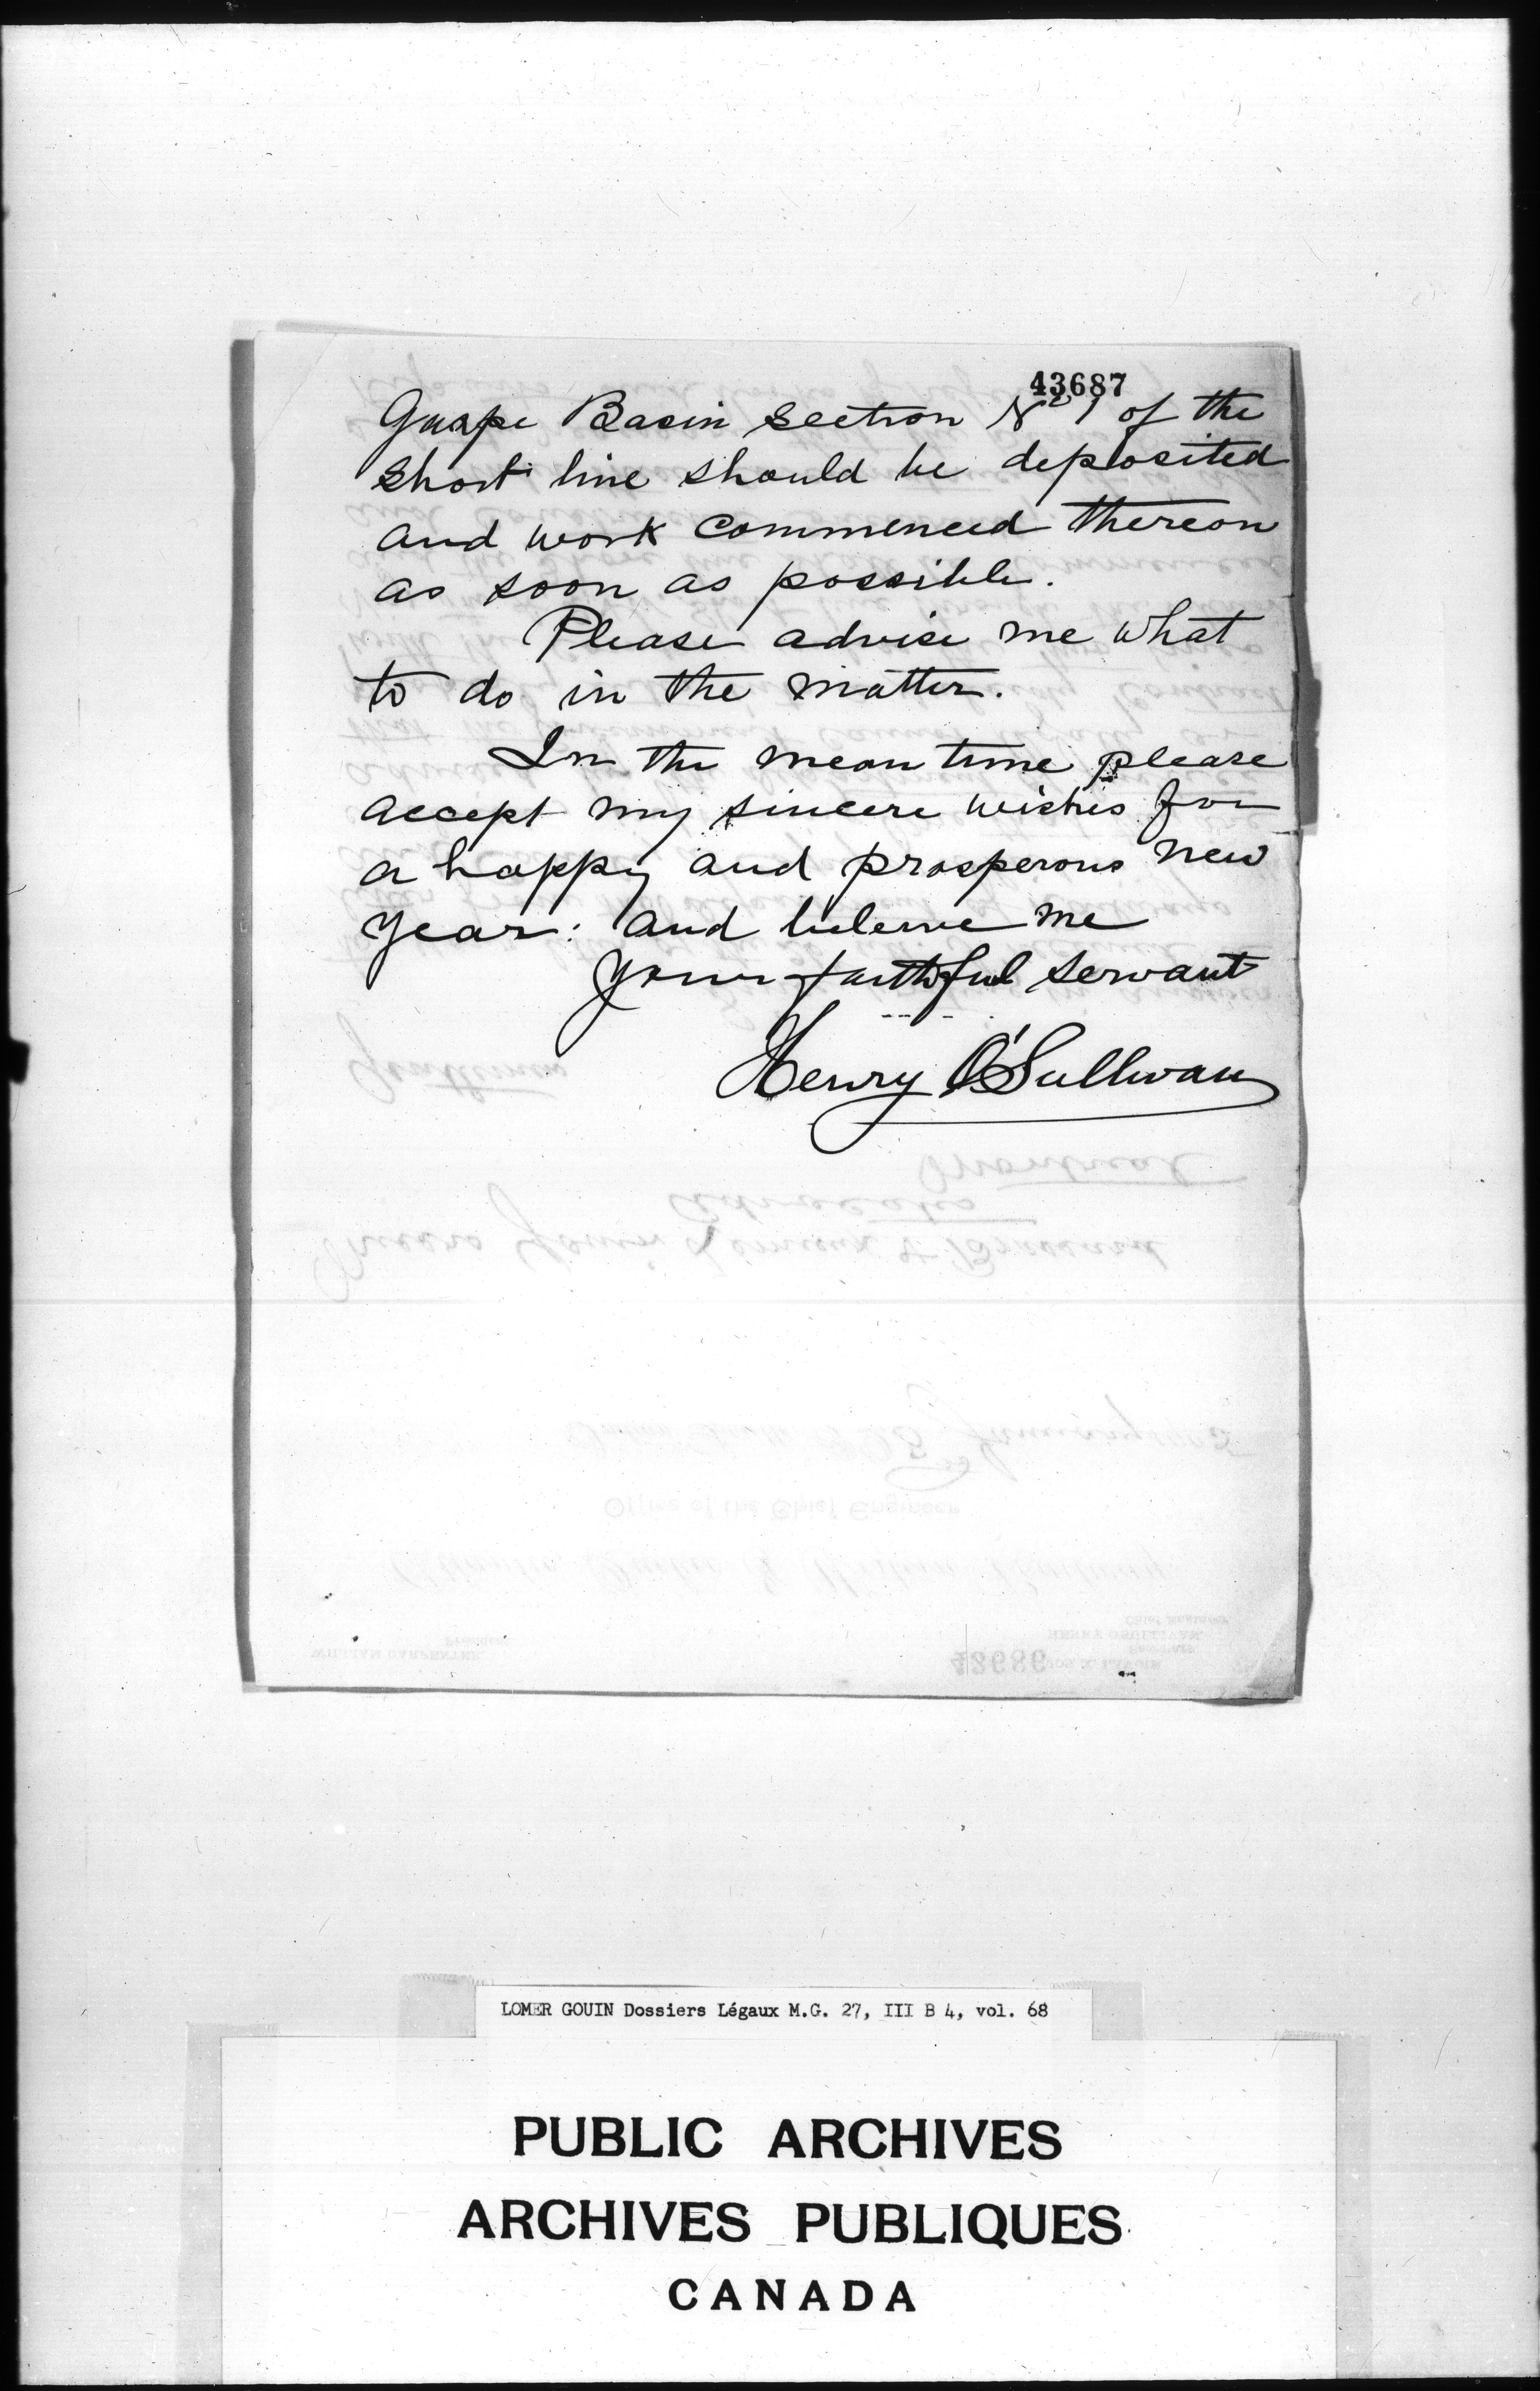 43687
Gaspe Basin section No 1 of the
short line should be deposited
and work commenced thereon
as soon as possible.
Please advise me what
to do in the matter.
In the mean time please
accept my sincere wishes for
a happy and prosperous new
year: and believe me
Your faithful servant
Henry O'Sullivan
LOMER GOUIN Dossiers Légaux M.G. 27, III B 4, vol. 68
PUBLIC ARCHIVES
ARCHIVES PUBLIQUES
CANADA